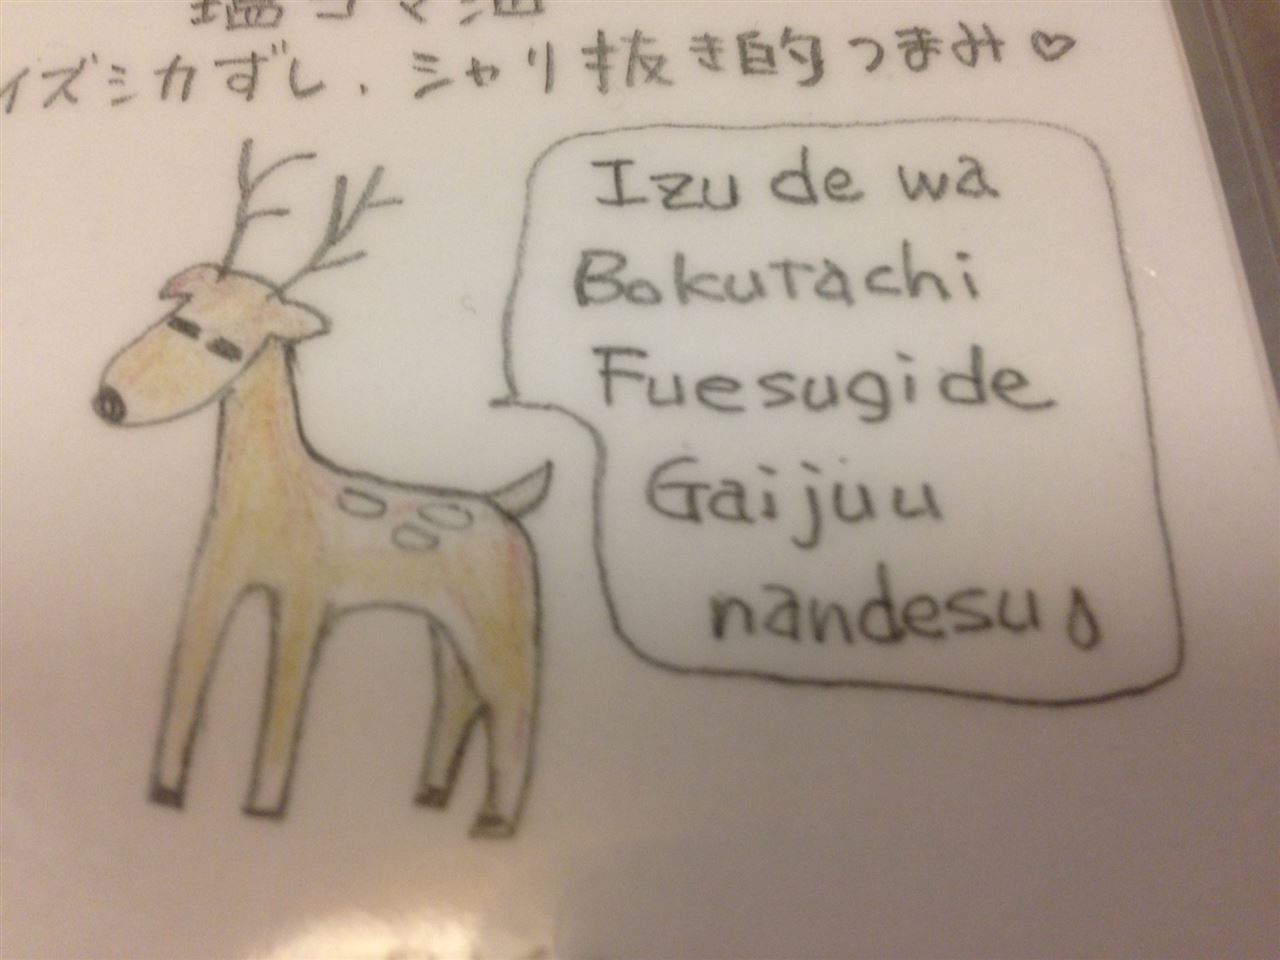 塩ゴマ油
イズシカずし、シャリ抜き的つまみ♡
Izu de wa
Bokutachi
Fuesugi de
Gaijuu
nandesu